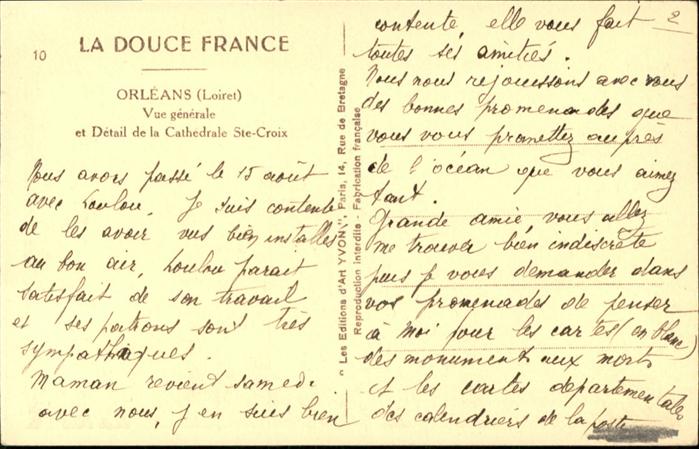 10
LA DOUCE FRANCE
ORLÉANS (Loiret)
Vue générale
et Détail de la Cathedrale Ste-Croix
Nous avons passé le 15 août
avec Loulou, Je suis contente
de les avoir vus bien installés
au bon air, Loulou parait
satisfait de son travail
et ses patrons sont très
sympathiques.
Maman revient samedi
avec nous, j'en suis bien
"Les Editions d'Art YVON", Paris, 14, Rue de Bretagne
Reproduction interdite - Fabrication française
2
contente, elle vous fait
toutes ses amitiés.
Nous nous rejouissons avec vous
des bonnes promenades que
vous vous promettez auprès
de l'océan que vous aimez
tant.
Grande amie, vous allez
me trouver bien indiscrète
puis je vous demander dans
vos promenades de penser
à moi pour les cartes (en blanc)
des monuments aux morts
et les cartes departementales
des calendriers de la poste